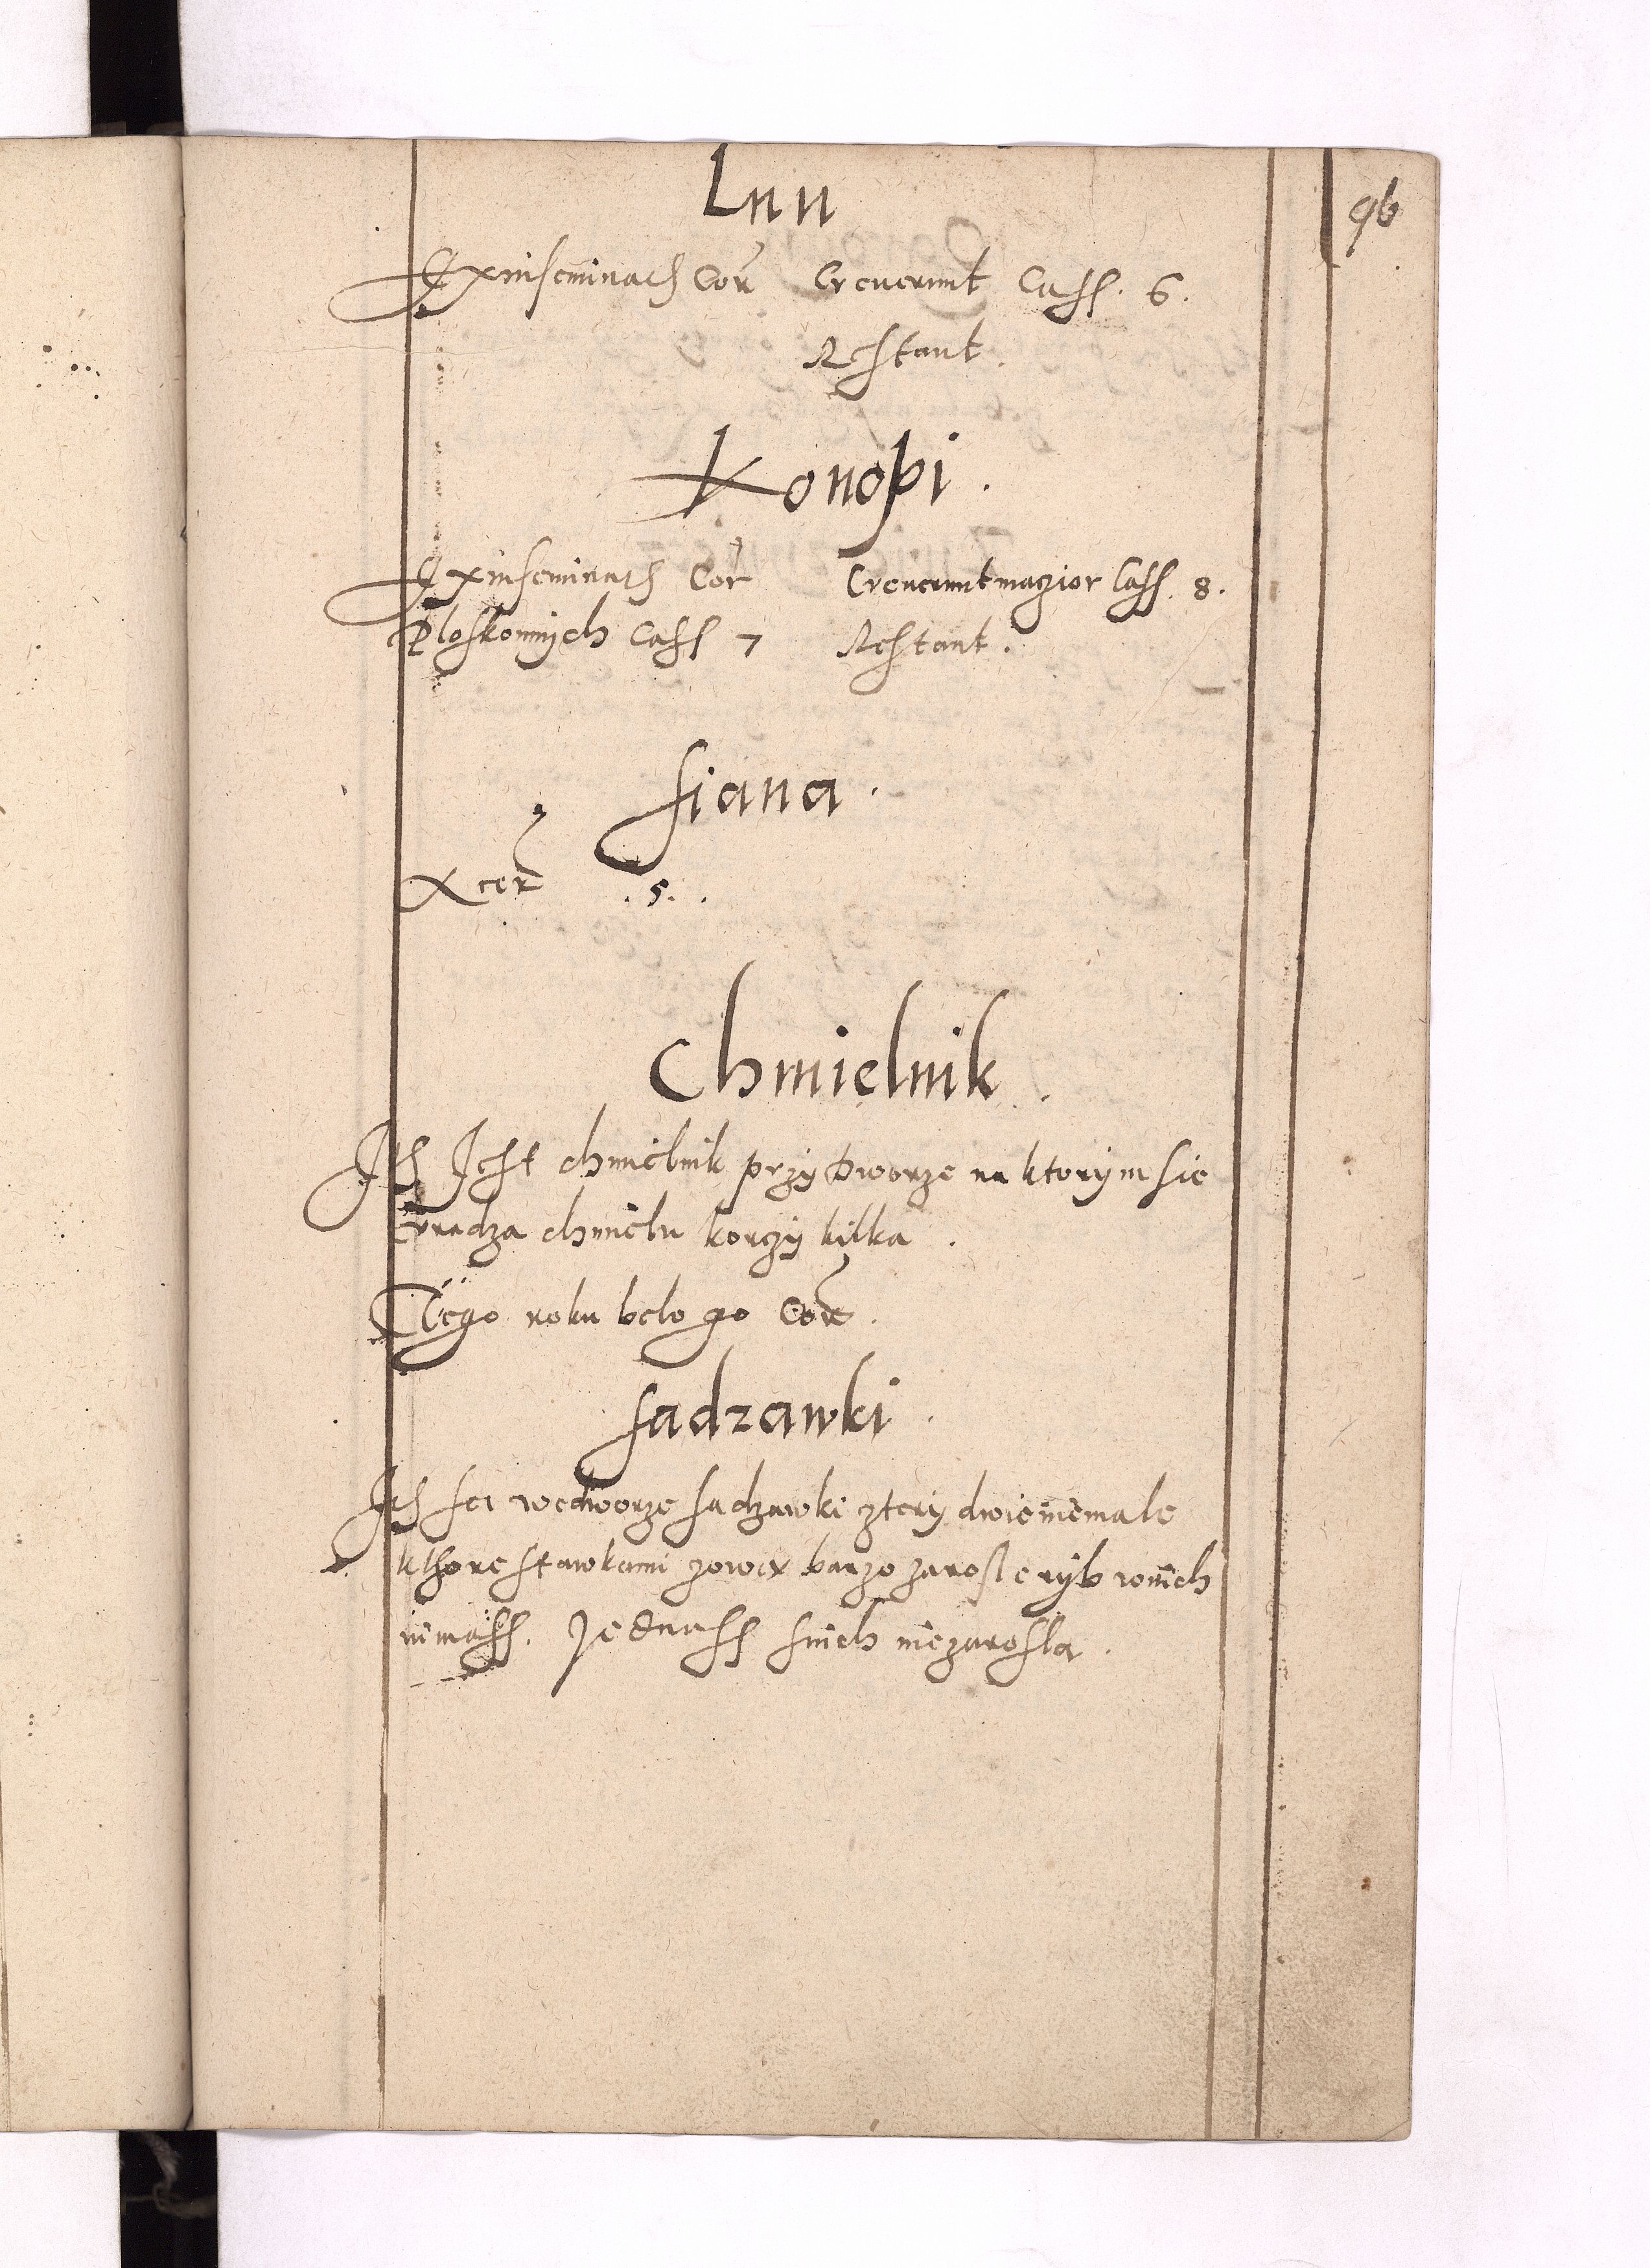 Lnu
96
Exinseminatis Cor Creverunt Cass. 6.
Restant.
Konopi.
Exinseminatis Cor Creverunt magior Cass. 8.
Ploskonnych Cass 7 Restant.
siana.
Acer .5..
Chmielnik.
Jest chmielnik przy Dworze na ktorym sie
vradza chmielu korczy kilka.
Tego roku belo go Cor.
sadzawki.
sa wedworze sadzawki cztery dwie niemale
kthore stawkami zowa barzo zarosle ryb wnich
nimass. Jednass snich niezarosla.